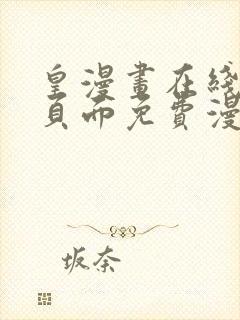 皇漫畫在綫
頁而免費漫
坂奈